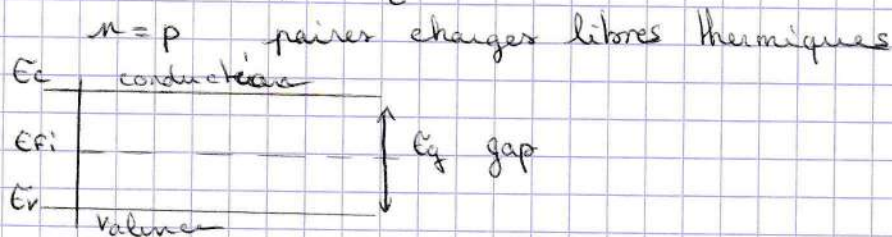 n = p paires charges libres thermiques
Ec conduction
EFi
Eg gap
Ev
Valence